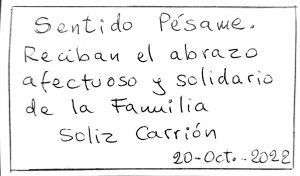 Sentido Pésame.
Reciban el abrazo
afectuoso y solidario
de la Familia
Soliz Carrión
20-Oct.-2022